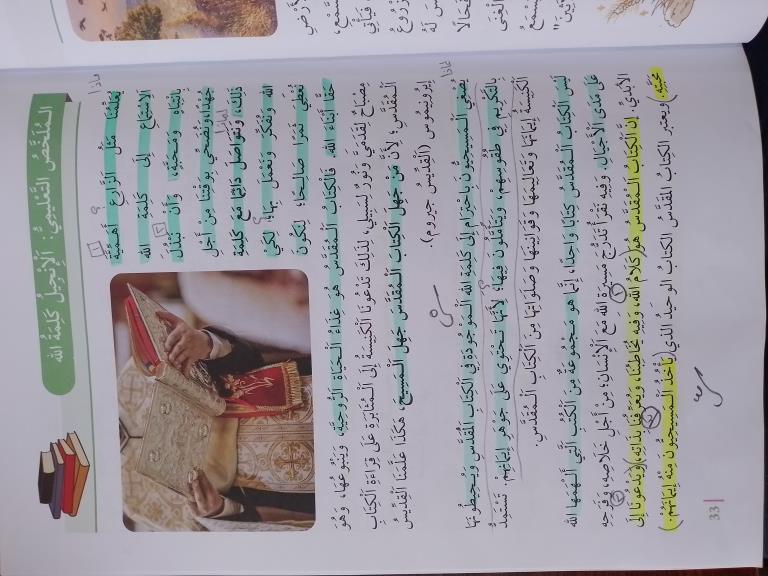 الْمُلَخَّصُ التَّعْلِيمِيُّ: الْإِنْجِيلُ كَلِمَةُ اللهِ
ماذا
يُعَلِّمُنَا مَثَلُ الزَّارِعِ أَهَمِّيَّةَ
الِاسْتِمَاعِ إِلَى كَلِمَةِ اللهِ
بِانْتِبَاهٍ وَمَحَبَّةٍ، وَأَنْ نَبْذُلَ
جُهْدًا، وَنُضَحِّيَ بِوَقْتِنَا مِنْ أَجْلِ
ذَلِكَ، وَنَتَوَاصَلَ دَائِمًا مَعَ كَلِمَةِ
اللهِ وَنُفَكِّرَ وَنَعْمَلَ بِهَا؛ لِكَيْ
نُعْطِيَ ثَمَرًا صَالِحًا؛ لِنَكُونَ
حَقًّا أَبْنَاءَ اللهِ. فَالْكِتَابُ الْمُقَدَّسُ هُوَ غِذَاءُ الْحَيَاةِ الرُّوحِيَّةِ، وَيَنْبُوعُهَا، وَهُوَ
مِصْبَاحٌ لِقَدَمَيَّ وَنُورٌ لِسَبِيلِي، لِذَلِكَ تَدْعُونَا الْكَنِيسَةُ إِلَى الْمُثَابَرَةِ عَلَى قِرَاءَةِ الْكِتَابِ
الْمُقَدَّسِ؛ لِأَنَّ مَنْ جَهِلَ الْكِتَابَ الْمُقَدَّسَ جَهِلَ الْمَسِيحَ، هَكَذَا عَلَّمَنَا الْقِدِّيسُ
إِيرُونِيمُوس (الْقِدِّيسُ جِيرُوم).
لماذا
يُصْغِي الْمَسِيحِيُّونَ بِاحْتِرَامٍ إِلَى كَلِمَةِ اللهِ الْمَوْجُودَةِ فِي الْكِتَابِ الْمُقَدَّسِ وَيُحِيطُونَهَا
بِالتَّكْرِيمِ فِي طُقُوسِهِمْ، وَيَتَأَمَّلُونَ فِيهَا؛ لِأَنَّهَا تَحْتَوِي عَلَى جَوْهَرِ إِيمَانِهِمْ. تَسْتَمِدُّ
الْكَنِيسَةُ إِيمَانَهَا وَتَعَالِيمَهَا وَقَوَانِينَهَا وَصَلَوَاتِهَا مِنَ الْكِتَابِ الْمُقَدَّسِ.
لَيْسَ الْكِتَابُ الْمُقَدَّسُ كِتَابًا وَاحِدًا، إِنَّمَا هُوَ مَجْمُوعَةٌ مِنَ الْكُتُبِ الَّتِي أَلْهَمَهَا اللهُ
عَلَى مَدَى الْأَجْيَالِ. وَفِيهِ نَقْرَأُ تَدَرُّجَ مَسِيرَةِ اللهِ مَعَ الْإِنْسَانِ: مِنْ أَجْلِ خَلَاصِهِ، وَفَرَحِهِ
الْأَبَدِيِّ. إِنَّ الْكِتَابَ الْمُقَدَّسَ هُوَ كَلَامُ اللهِ، وَفِيهِ يُخَاطِبُنَا، وَيُعَرِّفُنَا بِذَاتِهِ، وَيَدْعُونَا إِلَى
مَحَبَّتِهِ. وَيُعْتَبَرُ الْكِتَابُ الْمُقَدَّسُ الْكِتَابَ الْوَحِيدَ الَّذِي يَأْخُذُ الْمَسِيحِيُّونَ مِنْهُ إِيمَانَهُمْ.
33